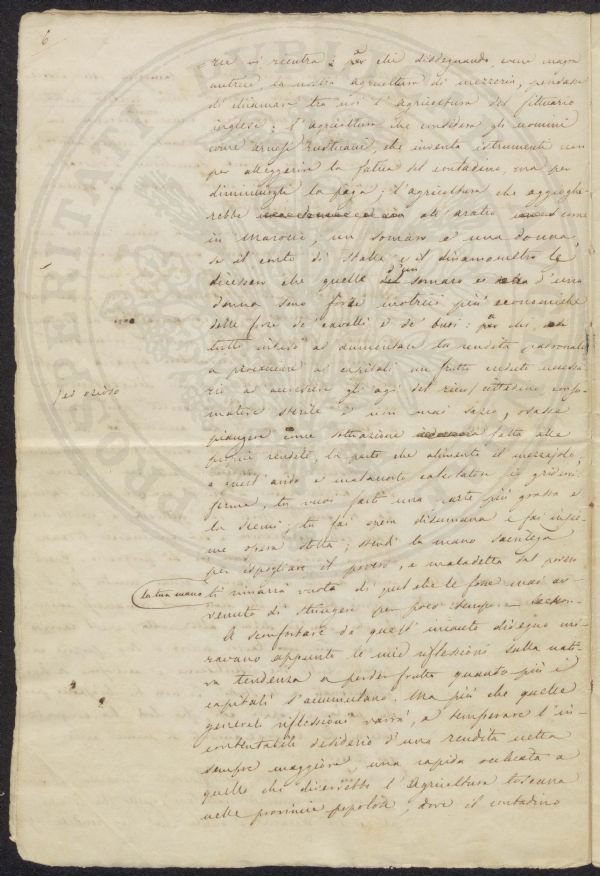 6
rer vi rientra; a chi disdegnando, come magra
nutrice la nostra agricoltura di mezzeria, pensasse
di chiamare tra noi l'agricoltura del fittuario
inglese; l'agricoltura che considera gli uomini
come arnesi rusticani; che inventa istrumenti non
per alleggerire la fatica del contadino, ma per
diminuirgli la paga; l'agricoltura che aggioghe-
rebbe all'aratro come
in Marocco, un somaro e una donna,
se il conto di stalla e il dinamometro le
dicessero che quelle d'un somaro e d'una
donna sono forze motrici più economiche
delle forze de' cavalli e de' buoi: a chi,
tutto inteso ad aumentare la rendita padronale
a procacciare ai capitali un frutto creduto necessa-
rio a accrescere gli agi del ricco cittadino consu-
ed ozioso
matore sterile e non mai sazio, osasse
piangere come sottrazione fatta alle
proprie rendite, la parte che alimenta il mezzajolo;
a quest'avido e malaccorto calcolatore io griderei:
ferma, tu vuoi farti una parte più grossa e
la scemi: tu fai opera disumana e fai insie-
me opera stolta; stendi la mano sacrilega
per ispogliare il povero, e maladetta dal povero
la tua mano
ti rimarrà vuota di quel che le fosse mai av-
venuto di stringere per poco tempo.
A sconfortare da quest'iniquo disegno mi-
ravano appunto le mie riflessioni sulla natu-
ra tendenza a perder frutto quanto più i
capitali s'accumulano. Ma più che quelle
generali riflessioni varrà, a temperare l'in-
contentabile desiderio d'una rendita netta
sempre maggiore, una rapida occhiata a
quello che diverrebbe l'Agricoltura toscana
nelle provincie popolose, dove il contadino